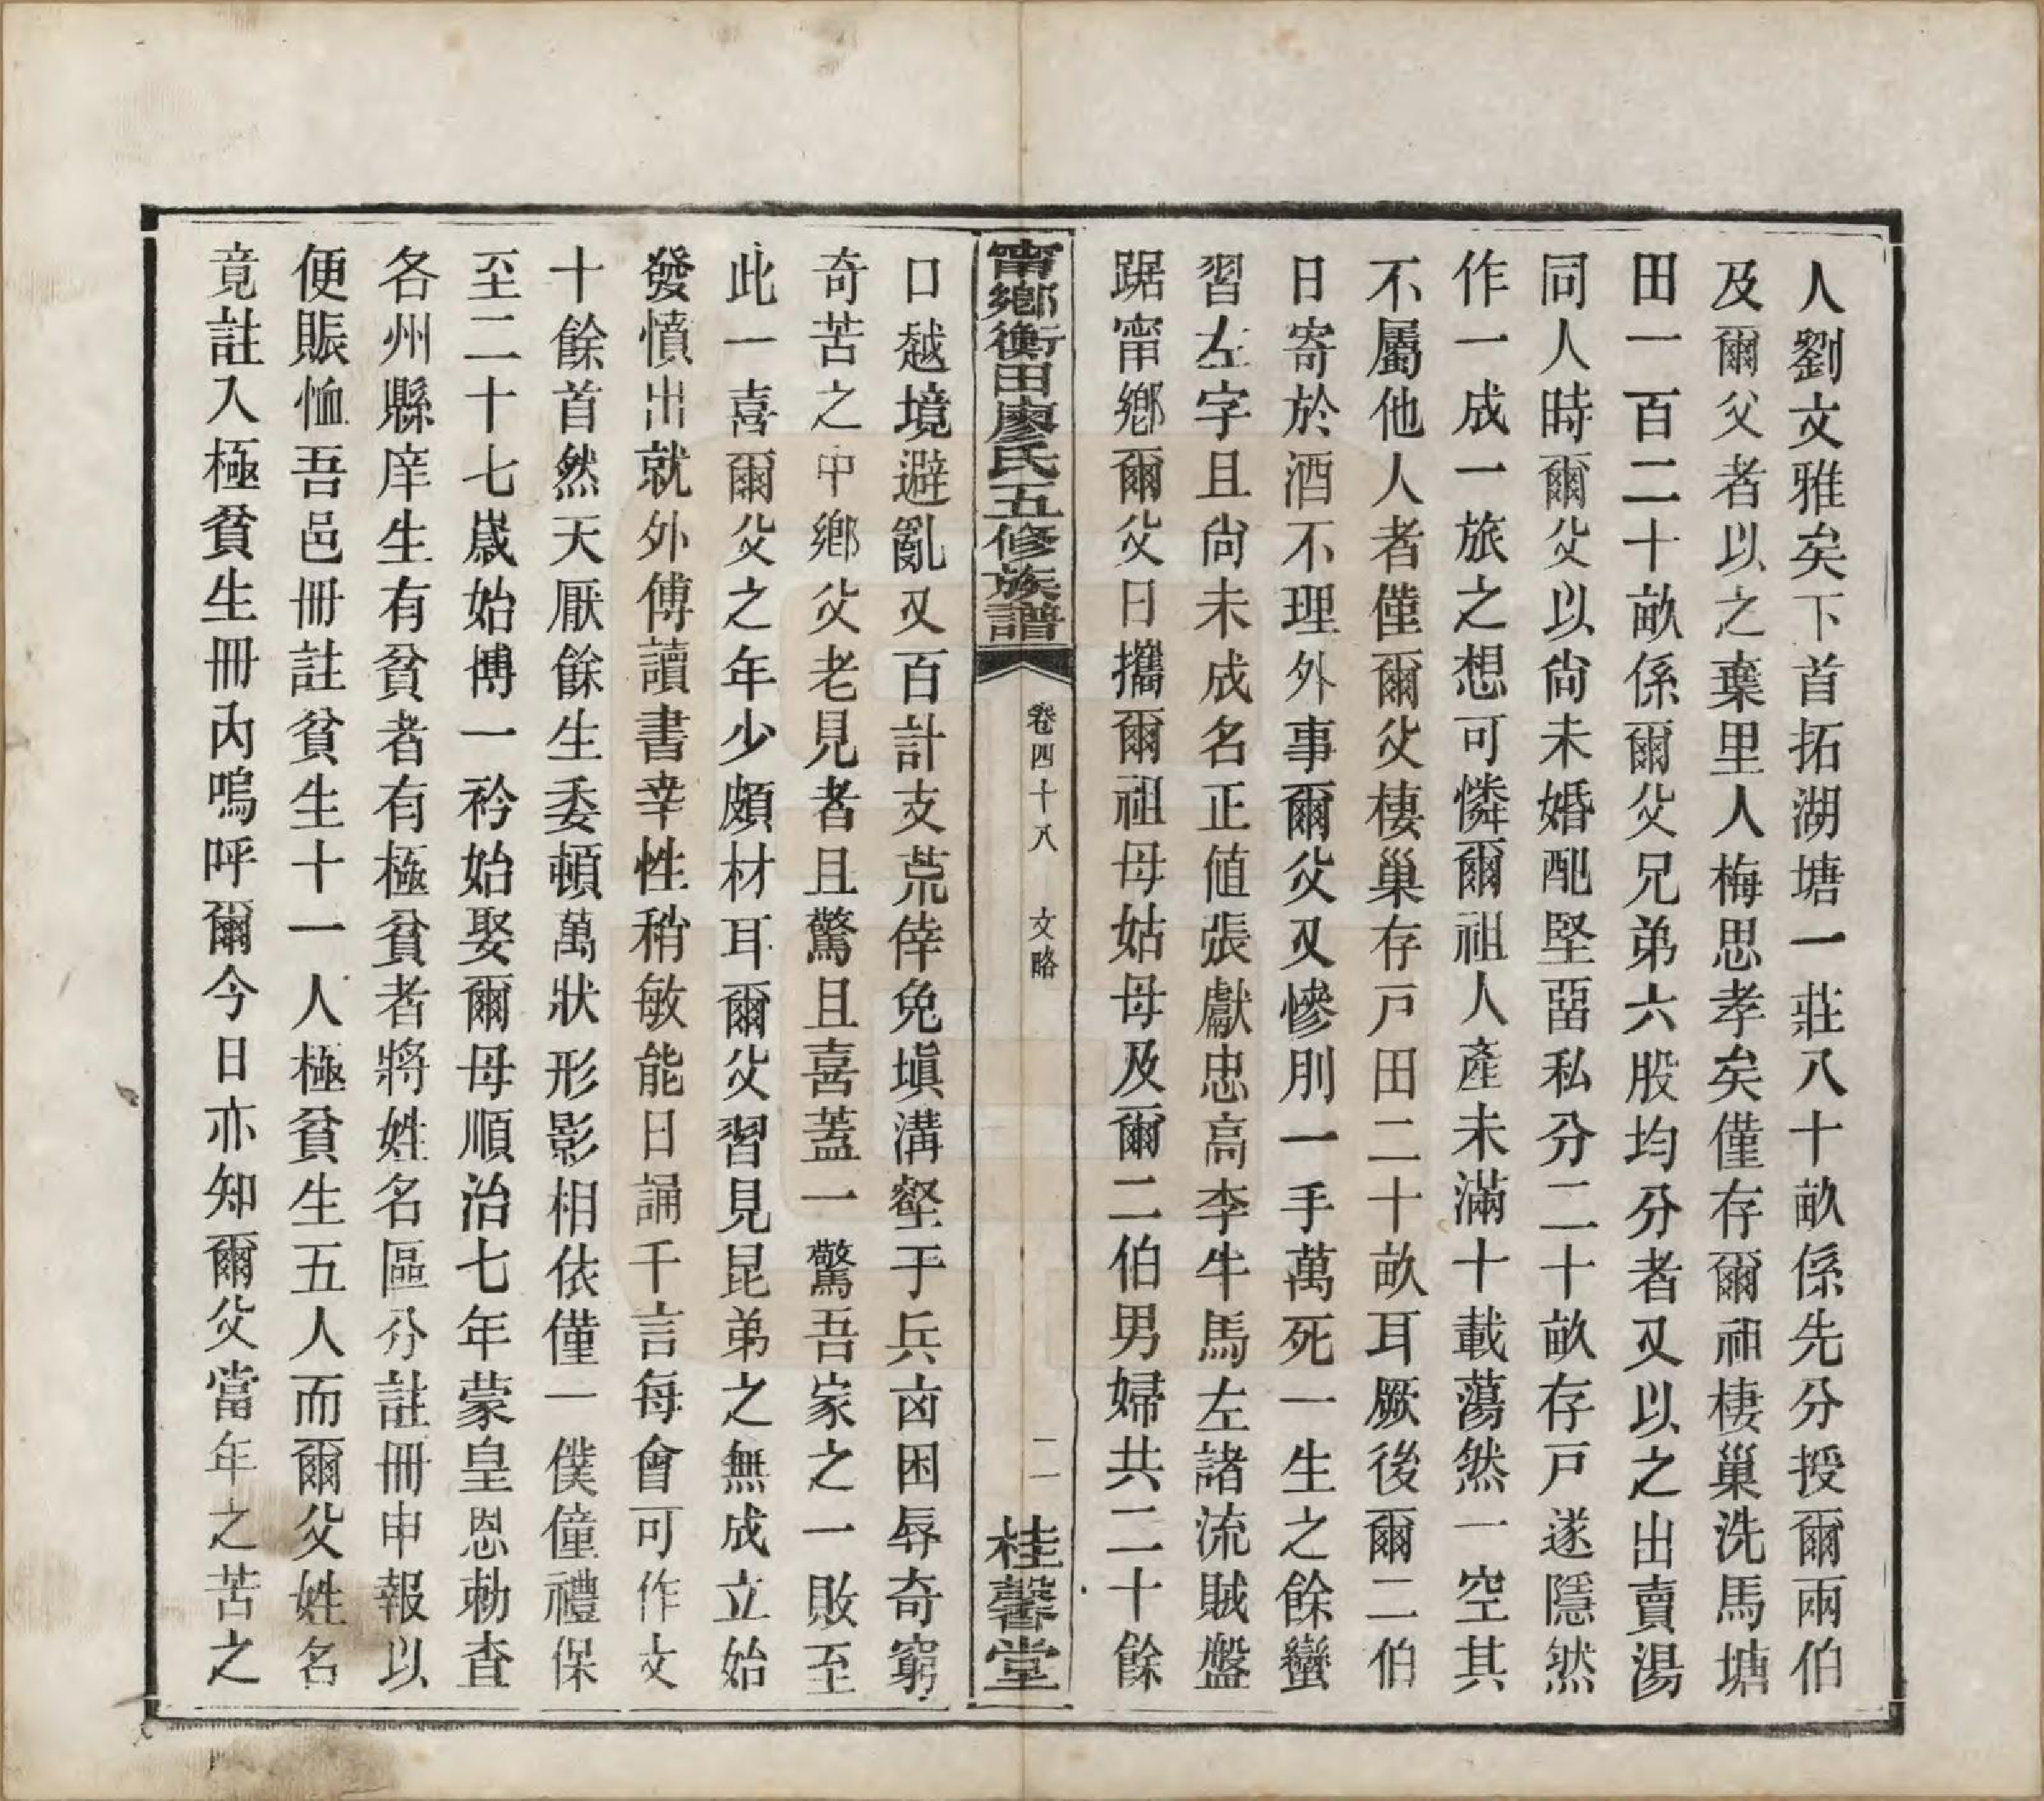 人劉文雅矣下首拓湖塘一莊八十畝係先分授爾兩伯
及爾父者以之棄里人梅思孝矣僅存爾祖棲巢洗馬塘
田一百二十畝係爾父兄弟六股均分者又以之出賣湯
同人時爾父以尚未婚配堅畱私分二十畝存戸遂隱然
作一成一旅之想可憐爾祖人產未滿十載蕩然一空其
不屬他人者僅爾父棲巢存戸田二十畝耳厥後爾二伯
日寄於酒不理外事爾父又慘刖一手萬死一生之餘蠻
習左字且尚未成名正值張獻忠高李牛馬左諸流賊盤
踞甯鄉爾父日攜爾祖母姑母及爾二伯男婦共二十餘
甯鄉衡田廖氏五修族譜 卷四十八 文略 二一 桂馨堂
口越境避亂又百計支荒倖免塡溝壑于兵凶困辱奇窮
奇苦之中鄉父老見者且驚且喜蓋一驚吾家之一敗至
此一喜爾父之年少頗材耳爾父習見昆弟之無成立始
發憤出就外傅讀書幸性稍敏能日誦千言每會可作文
十餘首然天厭餘生委頓萬狀形影相依僅一僕僮禮保
至二十七歲始博一衿始娶爾母順治七年蒙皇恩勑查
各州縣庠生有貧者有極貧者將姓名區分註冊申報以
便賑恤吾邑冊註貧生十一人極貧生五人而爾父姓名
竟註入極貧生冊內嗚呼爾今日亦知爾父當年之苦之